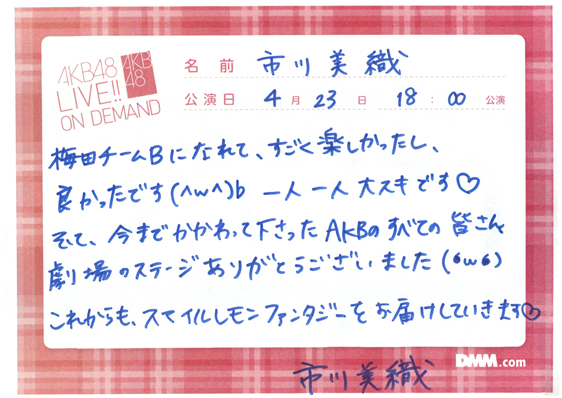 AKB48
LIVE!!
ON DEMAND
AKB
48
名前 市川美織
公演日 4月23日 18:00 公演
梅田チームBになれて、すごく楽しかったし、
良かったです(^w^)b 一人一人大スキです♡
そして、今までかかわって下さったAKBのすべての皆さん
劇場のステージありがとうございました(•w•)
これからも、スマイルレモンファンタジーをお届けしていきます♡
DMM.com
市川美織